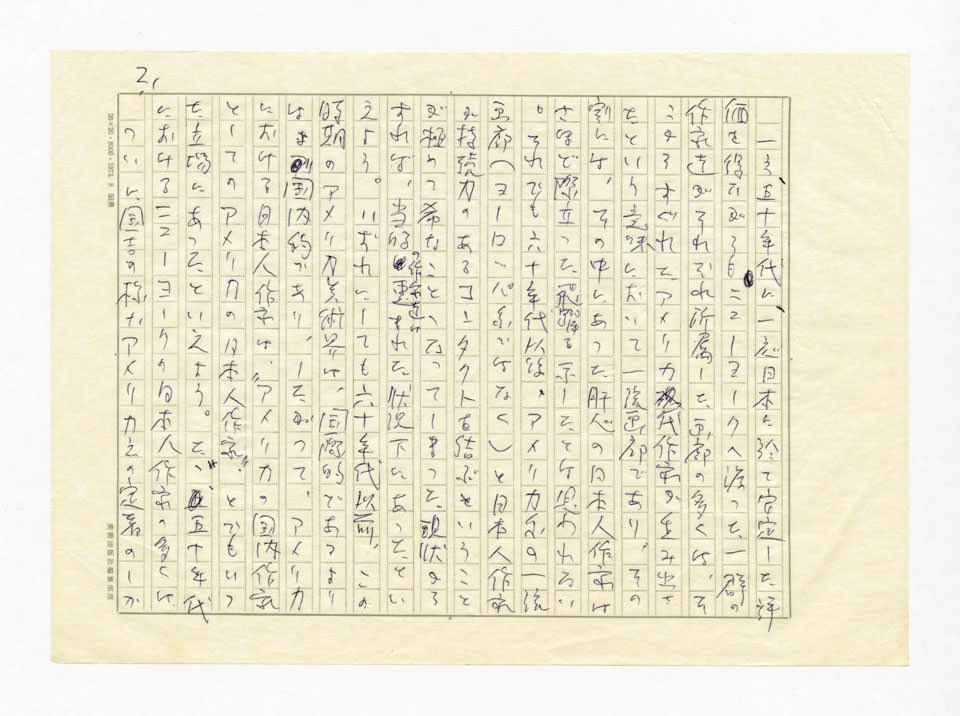 2,
一方、五十年代に、一応日本に於て安定した評
価を得ながらもニューヨークへ渡った一群の
作家達がそれぞれ所属した画廊の多くは、そ
こすぐれたアメリカ現代作家が生み出さ
たという意味において一流画廊であり、その
割には、その中にあった肝心の日本人作家は
さほど際立った飛躍を示したとは思われない
。それでも六十年代以後、アメリカ系の一流
画廊（ヨーロッパ系ではなくし）と日本人作家
が持続力のあるコンタクトを結ぶということ
が極めて希なことになってしまった現状から
すれば、当時の作家達は恵まれた状況下にあったとい
えよう。いずれにしても六十年代以前、この
時期のアメリカ美術界は、国際的であるより
はより国内的であり、したがって、アメリカ
における日本人作家は、“アメリカの国内作家
としてのアメリカの日本人作家”とでもいっ
た立場にあったといえよう。だが、五十年代
におけるニューヨークの日本人作家の多くは
ついに国吉の様なアメリカへの定着のしか
20×20・8000・1973・8 明泰
美術出版社編集部用